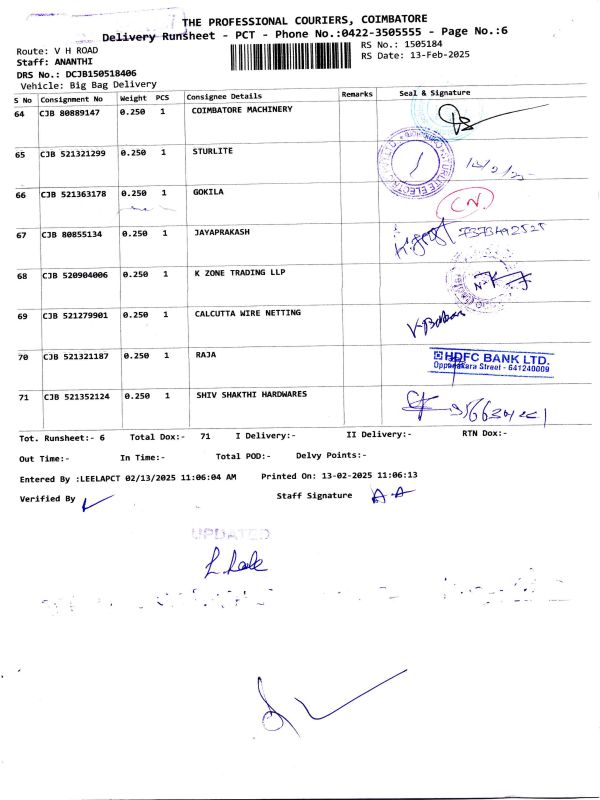 THE PROFESSIONAL COURIERS, COIMBATORE
Delivery Runsheet - PCT - Phone No.:0422-3505555 - Page No.:6
Route: V H ROAD
RS No.: 1505184
Staff: ANANTHI
RS Date: 13-Feb-2025
DRS No.: DCJB150518406
Vehicle: Big Bag Delivery
S No Consignment No Weight PCS Consignee Details Remarks Seal & Signature
64 CJB 80889147 0.250 1 COIMBATORE MACHINERY
65 CJB 521321299 0.250 1 STURLITE
66 CJB 521363178 0.250 1 GOKILA CN
67 CJB 80855134 0.250 1 JAYAPRAKASH 7373492525
68 CJB 520904006 0.250 1 K ZONE TRADING LLP
69 CJB 521279901 0.250 1 CALCUTTA WIRE NETTING
70 CJB 521321187 0.250 1 RAJA HDFC BANK LTD.
Oppanakara Street - 641240009
71 CJB 521352124 0.250 1 SHIV SHAKTHI HARDWARES
Tot. Runsheet:- 6 Total Dox:- 71 I Delivery:- II Delivery:- RTN Dox:-
Out Time:- In Time:- Total POD:- Delvy Points:-
Entered By :LEELAPCT 02/13/2025 11:06:04 AM Printed On: 13-02-2025 11:06:13
Verified By Staff Signature
UPDATED